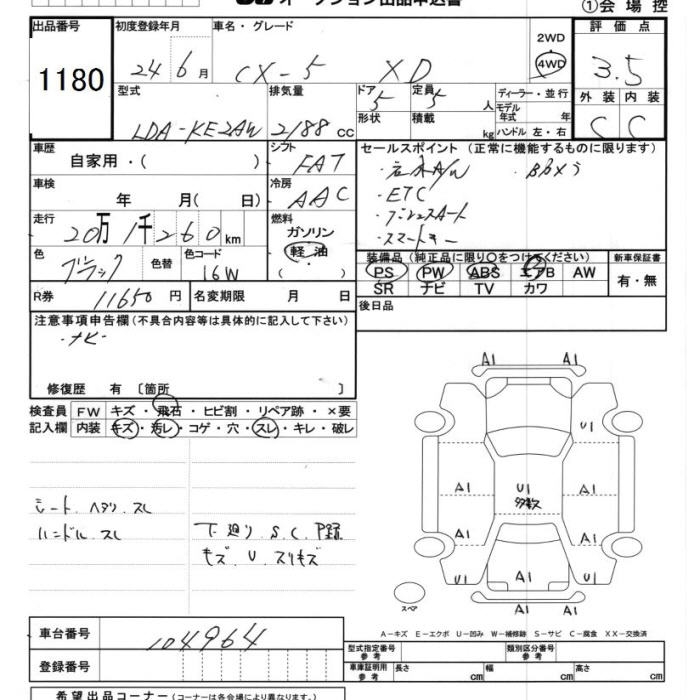 オークション出品申込書 ①会場控
出品番号 初度登録年月 車名・グレード 2WD 評価点
1180 24 6 月 CX-5 XD 4WD 3.5
型式 排気量 ドア 定員 ディーラー・並行 外装 内装
LDA-KE2AW 2188 cc 5 5 人 モデル年式 年 C C
形状 積載 kg ハンドル 左・右
車歴 シフト セールスポイント (正常に機能するものに限ります)
自家用・( ) FAT ・社外A/W ・Bカメラ
車検 冷房 ・ETC
年 月( 日) AAC ・プッシュスタート
走行 燃料 ・スマートキー
20万 1千 260 km ガソリン
色 色替 色コード 軽油 装備品 (純正品に限り○をつけてください) 新車保証書
ブラック 16W ( ・ ) PS PW ABS エアB AW 有・無
R券 11650 円 名変期限 月 日 SR ナビ TV カワ
注意事項申告欄 (不具合内容等は具体的に記入して下さい) 後日品
・ナビ・
修復歴 有 〔箇所 〕
検査員 FW キズ・飛石・ヒビ割・リペア跡・×要
記入欄 内装 キズ・汚レ・コゲ・穴・スレ・キレ・破レ
A1 A1
U1
A1 U1 A1
多数
A1 A1
U1 A1 U1
A1 A1
スペア
シート、ヘタリ、スレ
ハンドル、スレ 下廻り、S、C、
キズ、U、スリキズ
A-キズ E-エクボ U-凹み W-補修跡 S-サビ C-腐食 XX-交換済
車台番号 104964
登録番号
型式指定番号 参考 類別区分番号 参考
車庫証明用 参考 長さ cm 幅 cm 高さ cm
希望出品コーナー (コーナーは各会場により異なります。)